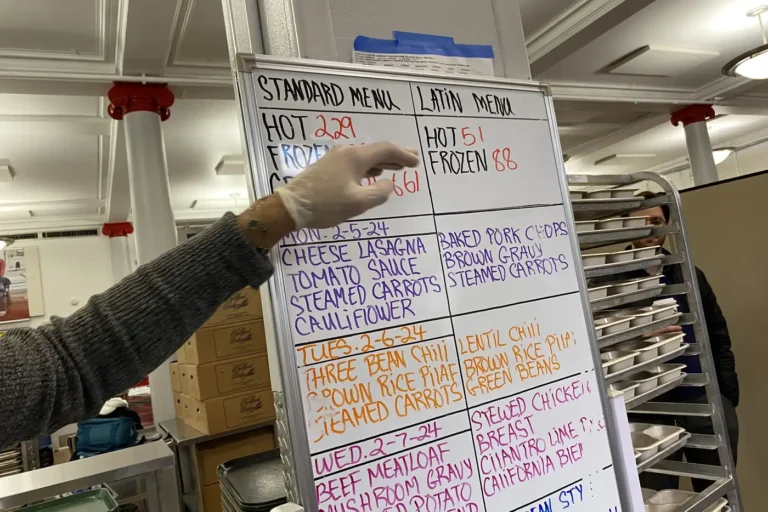 STANDARD MENU
HOT 229
FROZEN
661
MON. 2-5-24
CHEESE LASAGNA
TOMATO SAUCE
STEAMED CARROTS
CAULIFLOWER
TUES. 2-6-24
THREE BEAN CHILI
BROWN RICE PILAF
STEAMED CARROTS
WED. 2-7-24
BEEF MEATLOAF
MUSHROOM GRAVY
POTATO
LATIN MENU
HOT 51
FROZEN 88
BAKED PORK CHOPS
BROWN GRAVY
STEAMED CARROTS
LENTIL CHILI
BROWN RICE PILAF
GREEN BEANS
STEWED CHICKEN
BREAST
CILANTRO LIME
CALIFORNIA